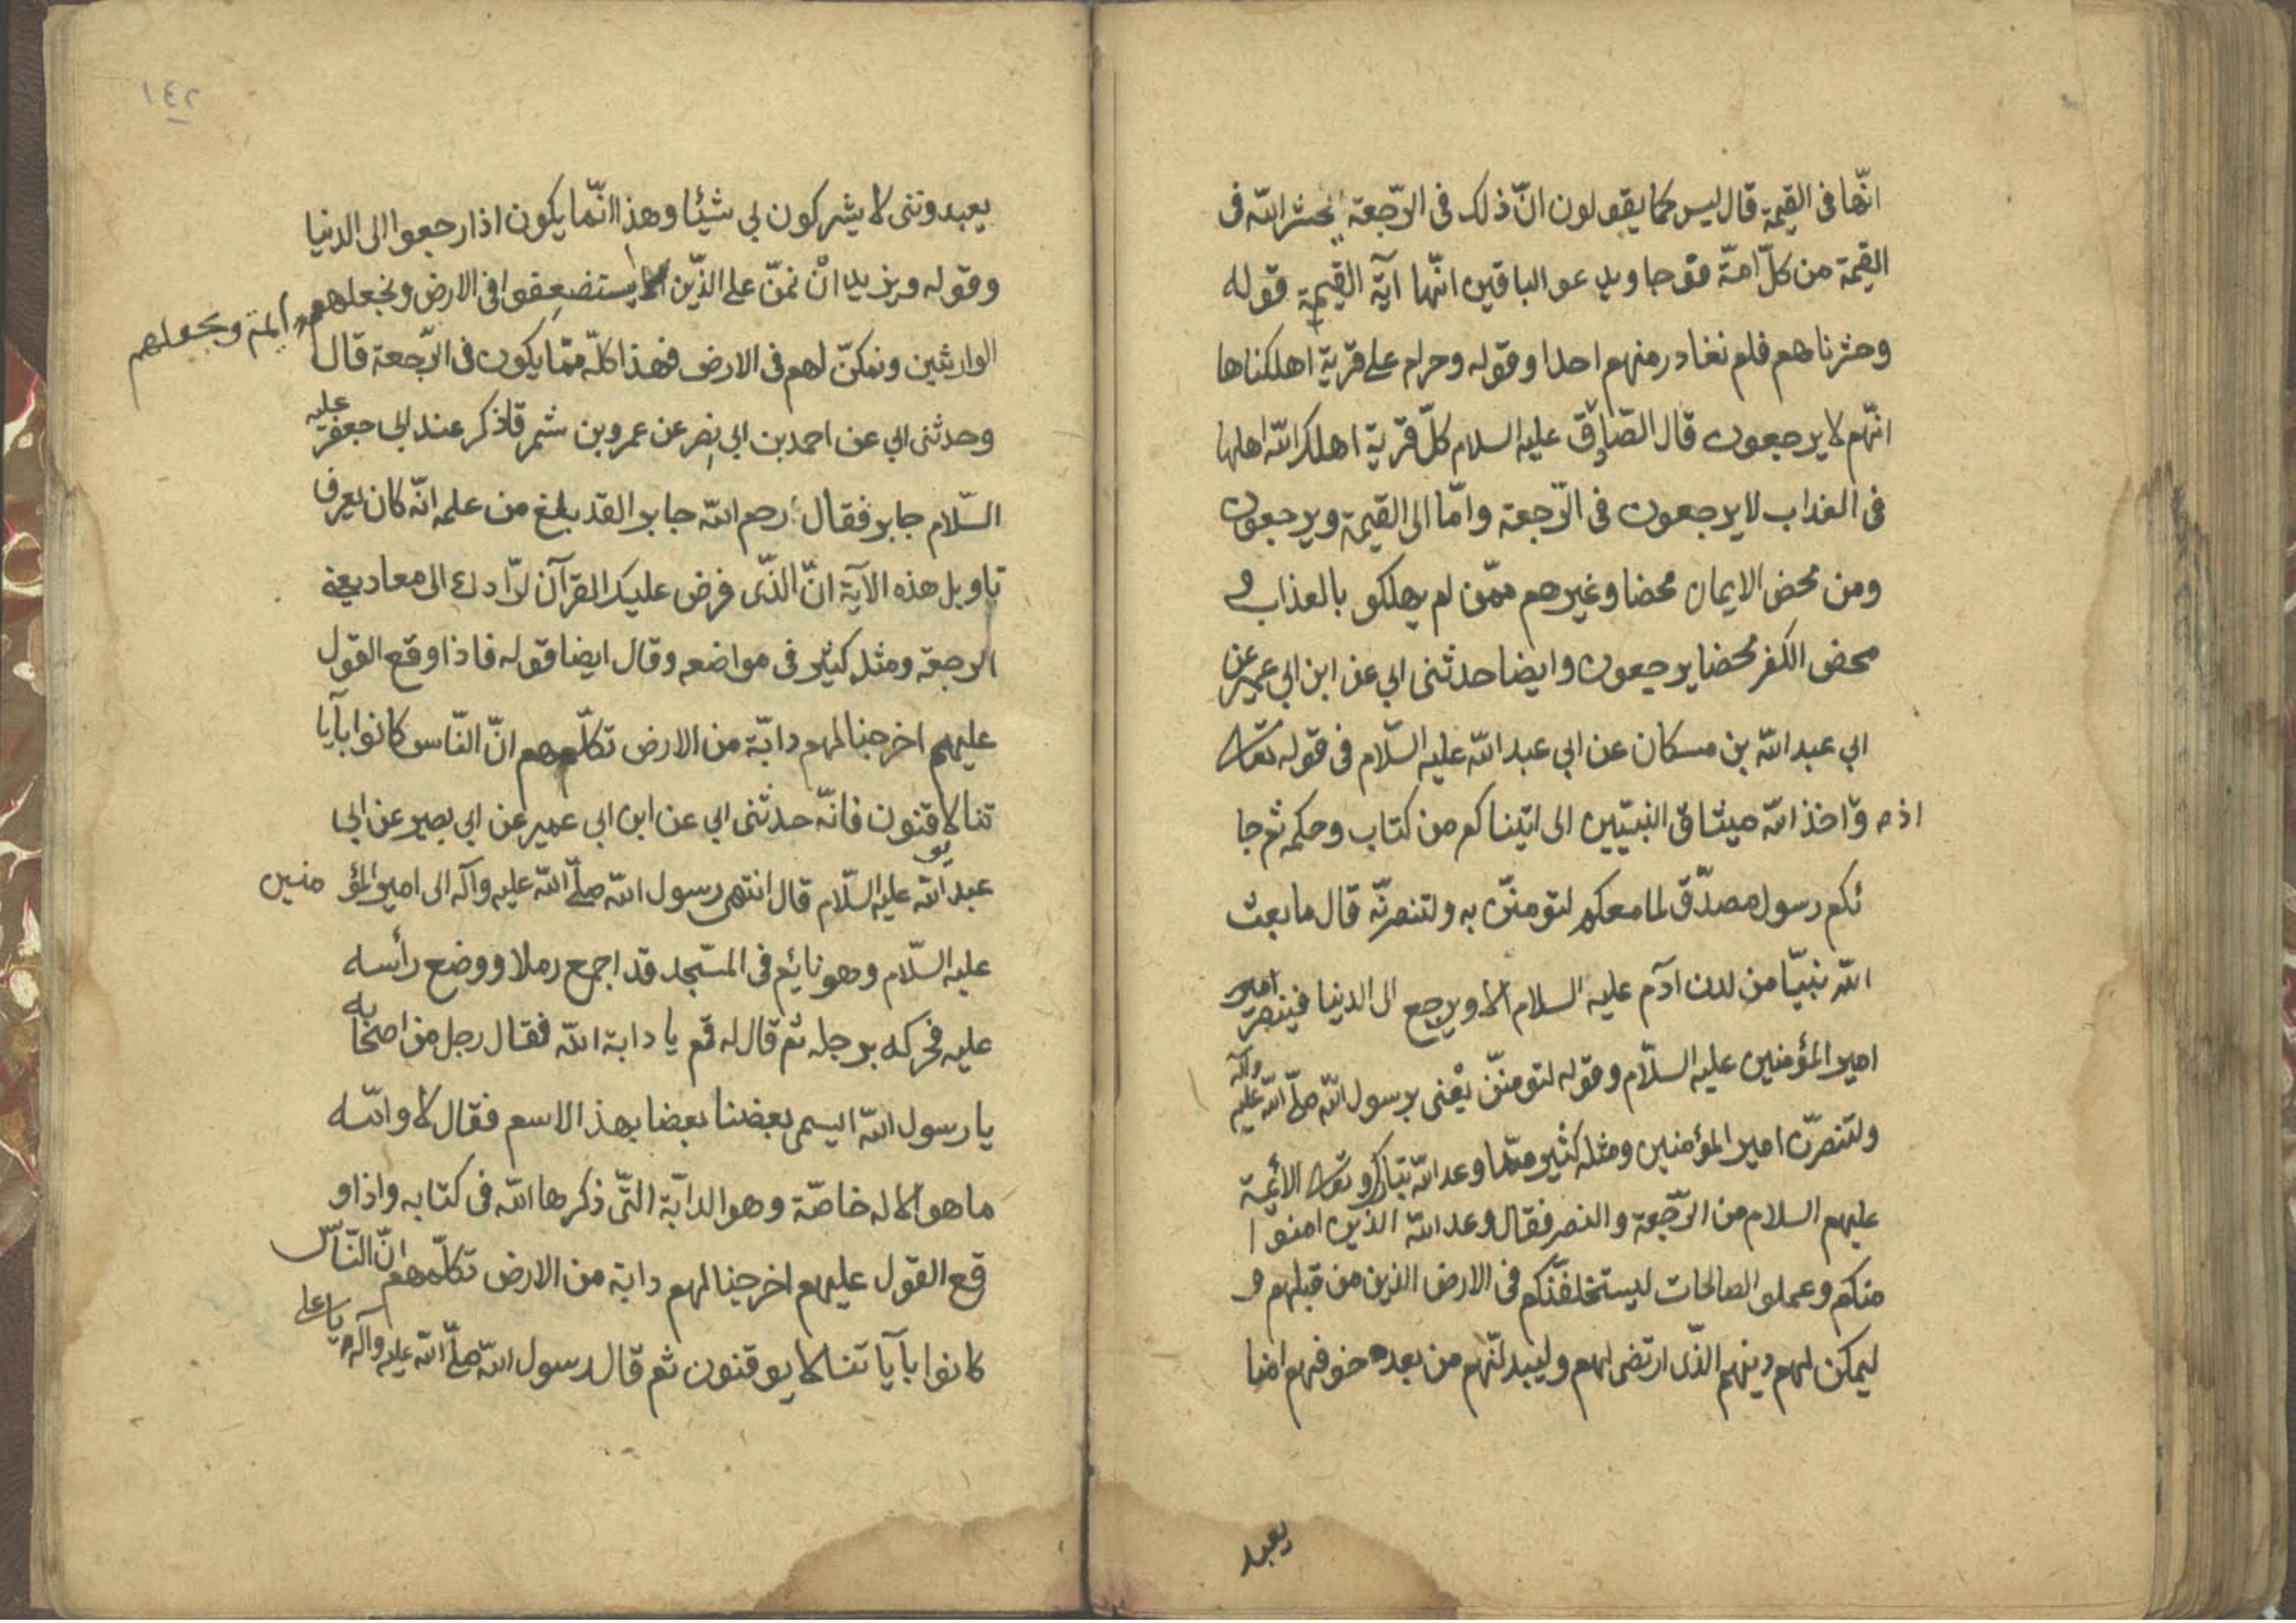 انّها فى القيمة قال ليس كما يقولون انّ ذلك فى الرّجعة ايحشر الله فى
القيمة من كلّ امّة فوجا ويدعو الباقين انّها آية القيمة قوله
وحشرناهم فلم نغادر منهم احدا وقوله وحرام على قرية اهلكناها
انّهم لا يرجعون قال الصّادق عليه السلام كلّ قرية اهلك الله اهلها
فى العذاب لا يرجعون فى الرّجعة وامّا الى القيمة ويرجعون
ومن محض الايمان محضا وغيرهم ممّن لم يهلكو بالعذاب و
محض الكفر محضا يرجعون وايضا حدثنى ابي عن ابن ابي عمير عن
ابي عبد الله بن مسكان عن ابي عبد الله عليه السّلام فى قوله تعالى
واذ اخذ الله ميثاق النبيّين الى اتيناكم من كتاب وحكمه ثم جا
ئكم رسول مصدّق لما معكم لتومننّ به ولتنصرنّه قال ما بعث
الله نبيّا من لدن آدم عليه السلام الا ويرجع الى الدنيا فينصر امير
امير المؤمنين عليه السلّام وقوله لتومننّ يعْنى برسول الله صلّى الله عليه وآله
ولتنصرّن امير المؤمنين ومثله كثير ممّا وعد الله تبارك وتعالى الائمّة
عليهم السلام من الرّجعة والنصر فقال وعد الله الذين امنوا
منكم وعملو الصالحات ليستخلفنّكم فى الارض الذين من قبلهم و
ليمكن لهم دينهم الذّى ارتضى لهم وليبدلنّهم من بعد خوفهم امنا
يعبد
١٤٢
يعبدوننى لا يشركون بي شيئا وهذا انّما يكون اذا رجعوا الى الدنيا
وقوله ونريد انْ نمنّ على الذّين استضعِفوا فى الارض ونجعلهم ائمة ونجعلهم
الوارثين ونمكنّ لهم فى الارض فهذا كلّه ممّا يكون فى الرّجعة قال
وحدثنى ابي عن احمد بن ابي نصر عن عمرو بن شمر قال ذكر عند ابى جعفر عليه
السّلام جابر فقال رحم الله جابر القد بلغ من علمه انّه كان يعرف
تاويل هذه الآية انّ الذّى فرض عليك القرآن لرّادك الى معاد يعنى
الرجعة ومثله كثير فى مواضعه وقال ايضا قوله فاذا وقع القول
عليهم اخرجنا لهم دابّة من الارض تكلّمهم انّ النّاس كانوا بآيا
تنا لا يوقنون فانّه حدثنى ابي عن ابن ابي عمير عن ابي بصير عن ابى
عبد الله عليه السّلام قال انتهى رسول الله صلّى الله عليه وآله الى امير المؤمنين
عليه السّلام وهو نائم فى المسّجد قد اجمع رملا ووضع رأسه
عليه فحركه برجله ثم قال له قم يا دابة الله فقال رجل من اصحابه
يا رسول الله ايسمى بعضنا بعضا بهذ الاسم فقال لا والله
ما هو الا له خاصّة وهو الدابّة التّى ذكرها الله فى كتابه واذا و
قع القول عليهم اخرجنا لهم دابة من الارض تكلّمهم انّ النّاس
كانوا بآياتنا لا يوقنون ثم قال رسول الله صلّى الله عليه وآله يا على